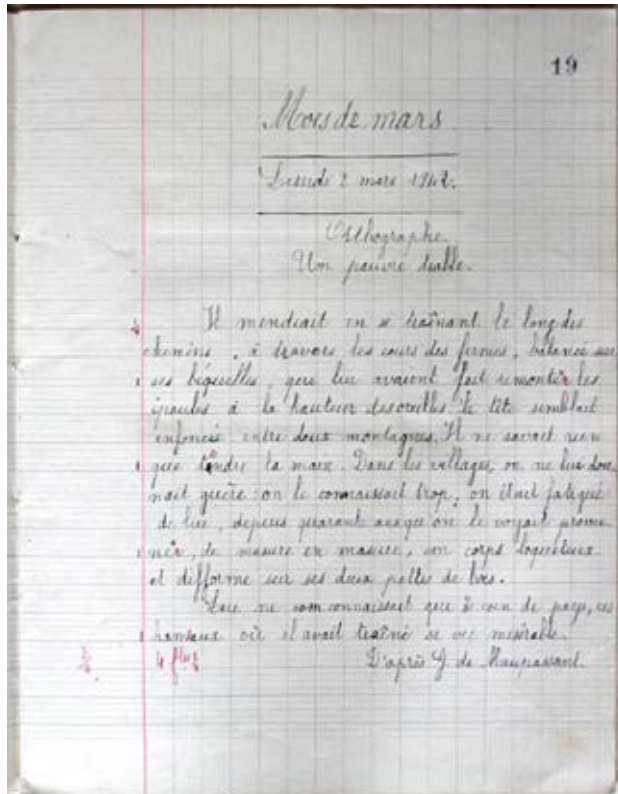 19
Mois de mars
Lundi 2 mars 1942.
Orthographe.
Un pauvre diable.
Il mendiait en se traînant le long des
chemins, à travers les cours des fermes, balancé sur
ses béquilles, qui lui avaient fait remonter les
épaules à la hauteur des oreilles. Sa tête semblait
enfoncée entre deux montagnes. Il ne savait rien
que tendre la main. Dans les villages, on ne lui don
nait guère: on le connaissait trop, on était fatigué
de lui, depuis quarant ans qu'on le voyait prome
ner, de masure en masure, son corps loqueteux
et difforme sur ses deux pattes de bois.
Lui ne connaissait que ce coin de pays, ces
hameaux où il avait traîné sa vie misérable.
4 ftes
D'après G. de Maupassant.